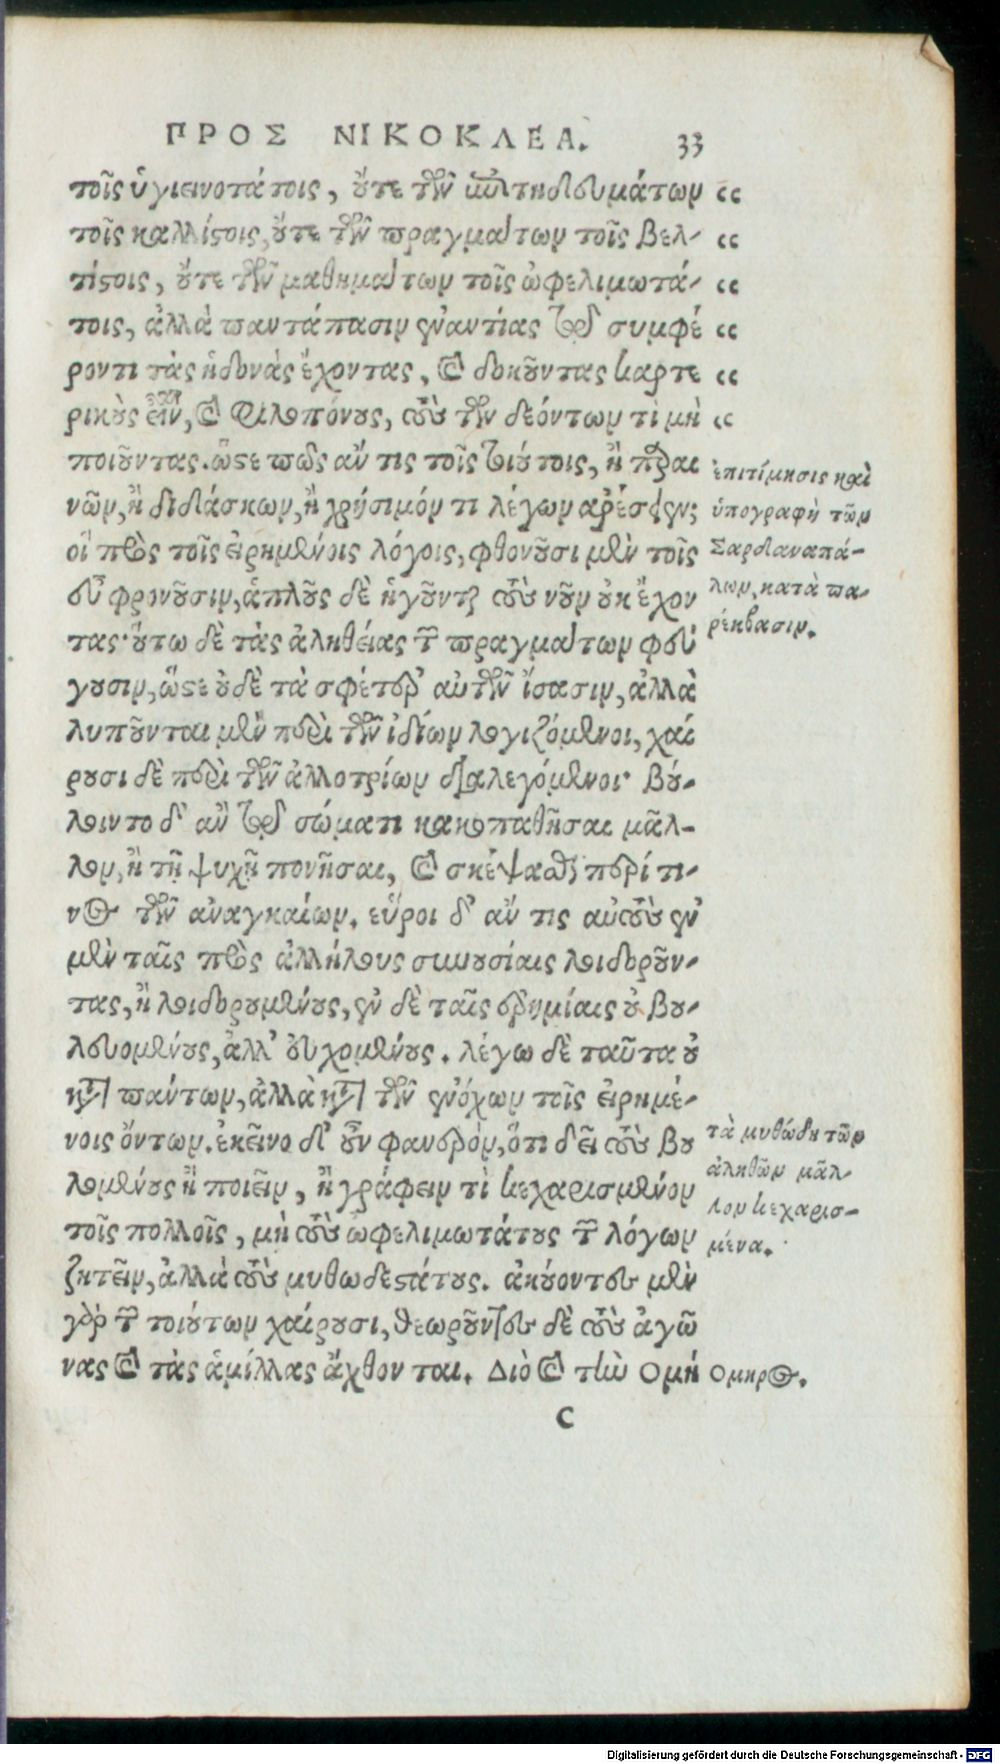 ΠΡΟΣ ΝΙΚΟΚΛΕΑ. 33
τοῖς ὑγιεινοτάτοις, ὔτε τῶν ἐπιτηδευμάτων
τοῖς καλλίϛοις, ὔτε τῶν πραγμάτων τοῖς βελ-
τίϛοις, ὔτε τῶν μαθημάτων τοῖς ὠφελιμωτά-
τοις, ἀλλὰ παντάπασιν ἐναντίας τῷ συμφέ
ροντι τὰς ἡδονὰς ἔχοντας, καὶ δοκοῦντας καρτε
ρικοὺς εἶναι, καὶ φιλοπόνους, τοὺς τῶν δεόντων τὶ μὴ
ποιοῦντας. ὥϛε πῶς ἄν τις τοῖς τοιούτοις, ἢ παραι
νῶν, ἢ διδάσκων, ἢ χρήσιμόν τι λέγων ἀρέσειεν;
οἳ πρὸς τοῖς εἰρημένοις λόγοις, φθονοῦσι μὲν τοῖς
εὖ φρονοῦσιν, ἁπλοῦς δὲ ἡγοῦνται τοὺς νοῦν οὐκ ἔχον
τας· οὕτω δὲ τὰς ἀληθείας τῶν πραγμάτων φεύ
γουσιν, ὥϛε οὐδὲ τὰ σφέτερ' αὐτῶν ἴσασιν, ἀλλὰ
λυποῦνται μὲν περὶ τῶν ἰδίων λογιζόμενοι, χαί
ρουσι δὲ περὶ τῶν ἀλλοτρίων διαλεγόμενοι· βού-
λοιντο δ' ἂν τῷ σώματι κακοπαθῆσαι μᾶλ-
λον, ἢ τῇ ψυχῇ πονῆσαι, καὶ σκέψασθαι περί τι-
νος τῶν ἀναγκαίων. εὕροι δ' ἄν τις αὐτοὺς ἐν
μὲν ταῖς πρὸς ἀλλήλους συνουσίαις λοιδοροῦν-
τας, ἢ λοιδορουμένους, ἐν δὲ ταῖς ἐρημίαις οὐ βου-
λευομένους, ἀλλ' εὐχομένους. λέγω δὲ ταῦτα οὐ
κατὰ πάντων, ἀλλὰ κατὰ τῶν ἐνόχων τοῖς εἰρημέ-
νοις ὄντων. ἐκεῖνο δ' οὖν φανερὸν, ὅτι δεῖ τοὺς βου
λομένους ἢ ποιεῖν, ἢ γράφειν τὶ κεχαρισμένον
τοῖς πολλοῖς, μὴ τοὺς ὠφελιμωτάτους τῶν λόγων
ζητεῖν, ἀλλὰ τοὺς μυθωδεϛάτους. ἀκούοντες μὲν
γὰρ τῶν τοιούτων χαίρουσι, θεωροῦντες δὲ τοὺς ἀγῶ
νας καὶ τὰς ἁμίλλας ἄχθονται. Διὸ καὶ τὴν Ομή
C
ἐπιτίμησις καὶ
ὑπογραφὴ τῶν
Σαρδαναπά-
λων, κατὰ πα-
ρέκβασιν.
τὰ μυθώδη τῶν
ἀληθῶν μᾶλ-
λον κεχαρισ-
μένα.
Ομηρος.
Digitalisierung gefördert durch die Deutsche Forschungsgemeinschaft - DFG